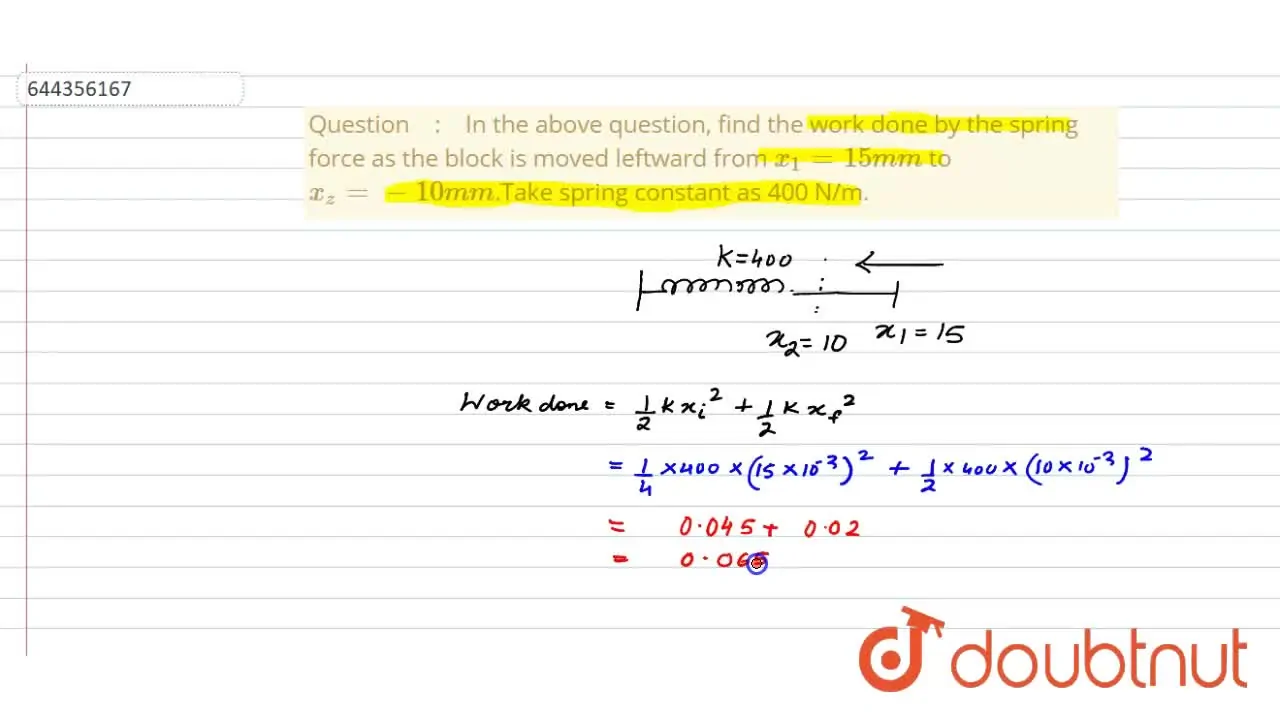 644356167
Question : In the above question, find the work done by the spring
force as the block is moved leftward from x₁ = 15mm to
x_z = −10mm.Take spring constant as 400 N/m.
K=400
x₂=10 x₁=15
Work done = 1/2 K xᵢ² + 1/2 K x_f²
= 1/4 ×400×(15×10⁻³)² + 1/2 ×400×(10×10⁻³)²
= 0.045+ 0.02
= 0.065
doubtnut